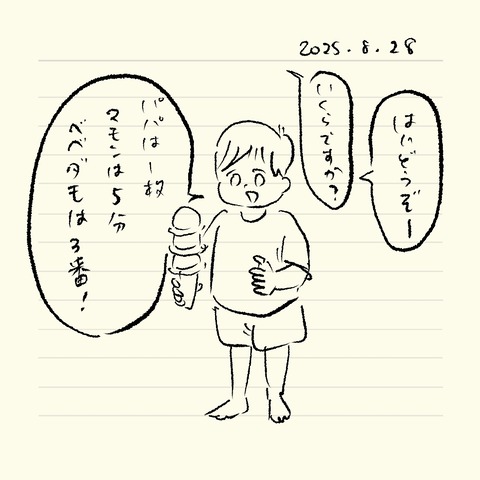 2025.8.28
はいどうぞー
いくらですか?
パパは1枚
マモンは5分
ベベダモは3番!